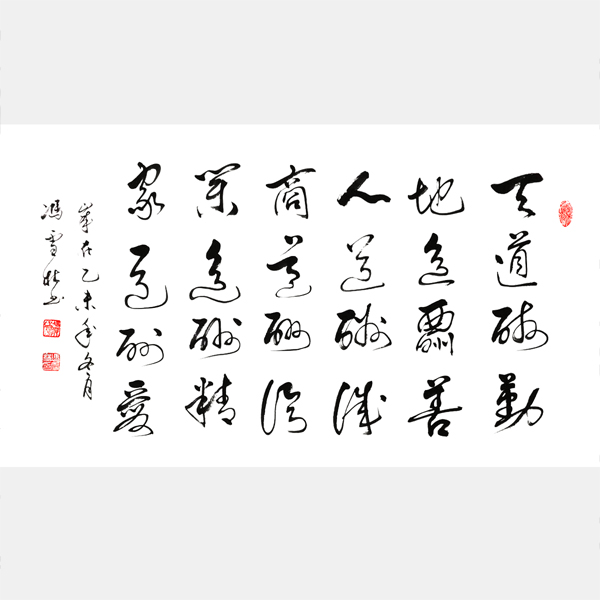 天道酬勤
地道酬善
人道酬诚
商道酬信
業道酬精
家道酬愛
歲在乙未年冬月
馮雪书